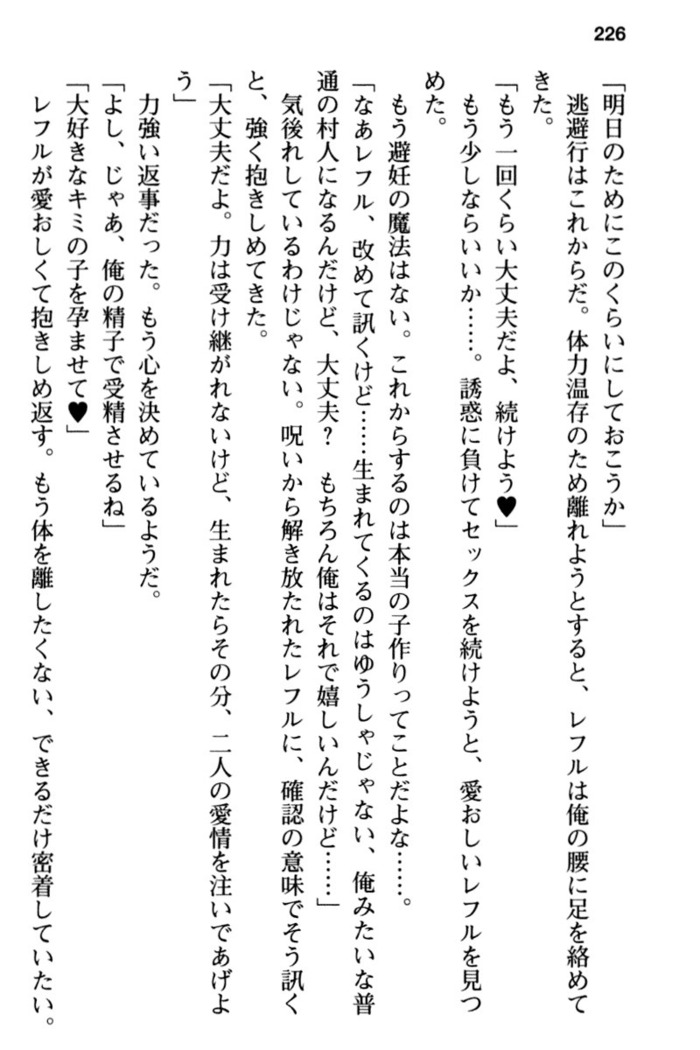 226
「明日のためにこのくらいにしておこうか」
　逃避行はこれからだ。体力温存のため離れようとすると、レフルは俺の腰に足を絡めて
きた。
「もう一回くらい大丈夫だよ、続けよう♥」
　もう少しならいいか……。誘惑に負けてセックスを続けようと、愛おしいレフルを見つ
めた。
　もう避妊の魔法はない。これからするのは本当の子作りってことだよな……。
「なあレフル、改めて訊くけど……生まれてくるのはゆうしゃじゃない、俺みたいな普
通の村人になるんだけど、大丈夫？　もちろん俺はそれで嬉しいんだけど……」
　気後れしているわけじゃない。呪いから解き放たれたレフルに、確認の意味でそう訊く
と、強く抱きしめてきた。
「大丈夫だよ。力は受け継がれないけど、生まれたらその分、二人の愛情を注いであげよ
う」
　力強い返事だった。もう心を決めているようだ。
「よし、じゃあ、俺の精子で受精させるね」
「大好きなキミの子を孕ませて♥」
　レフルが愛おしくて抱きしめ返す。もう体を離したくない、できるだけ密着していたい。